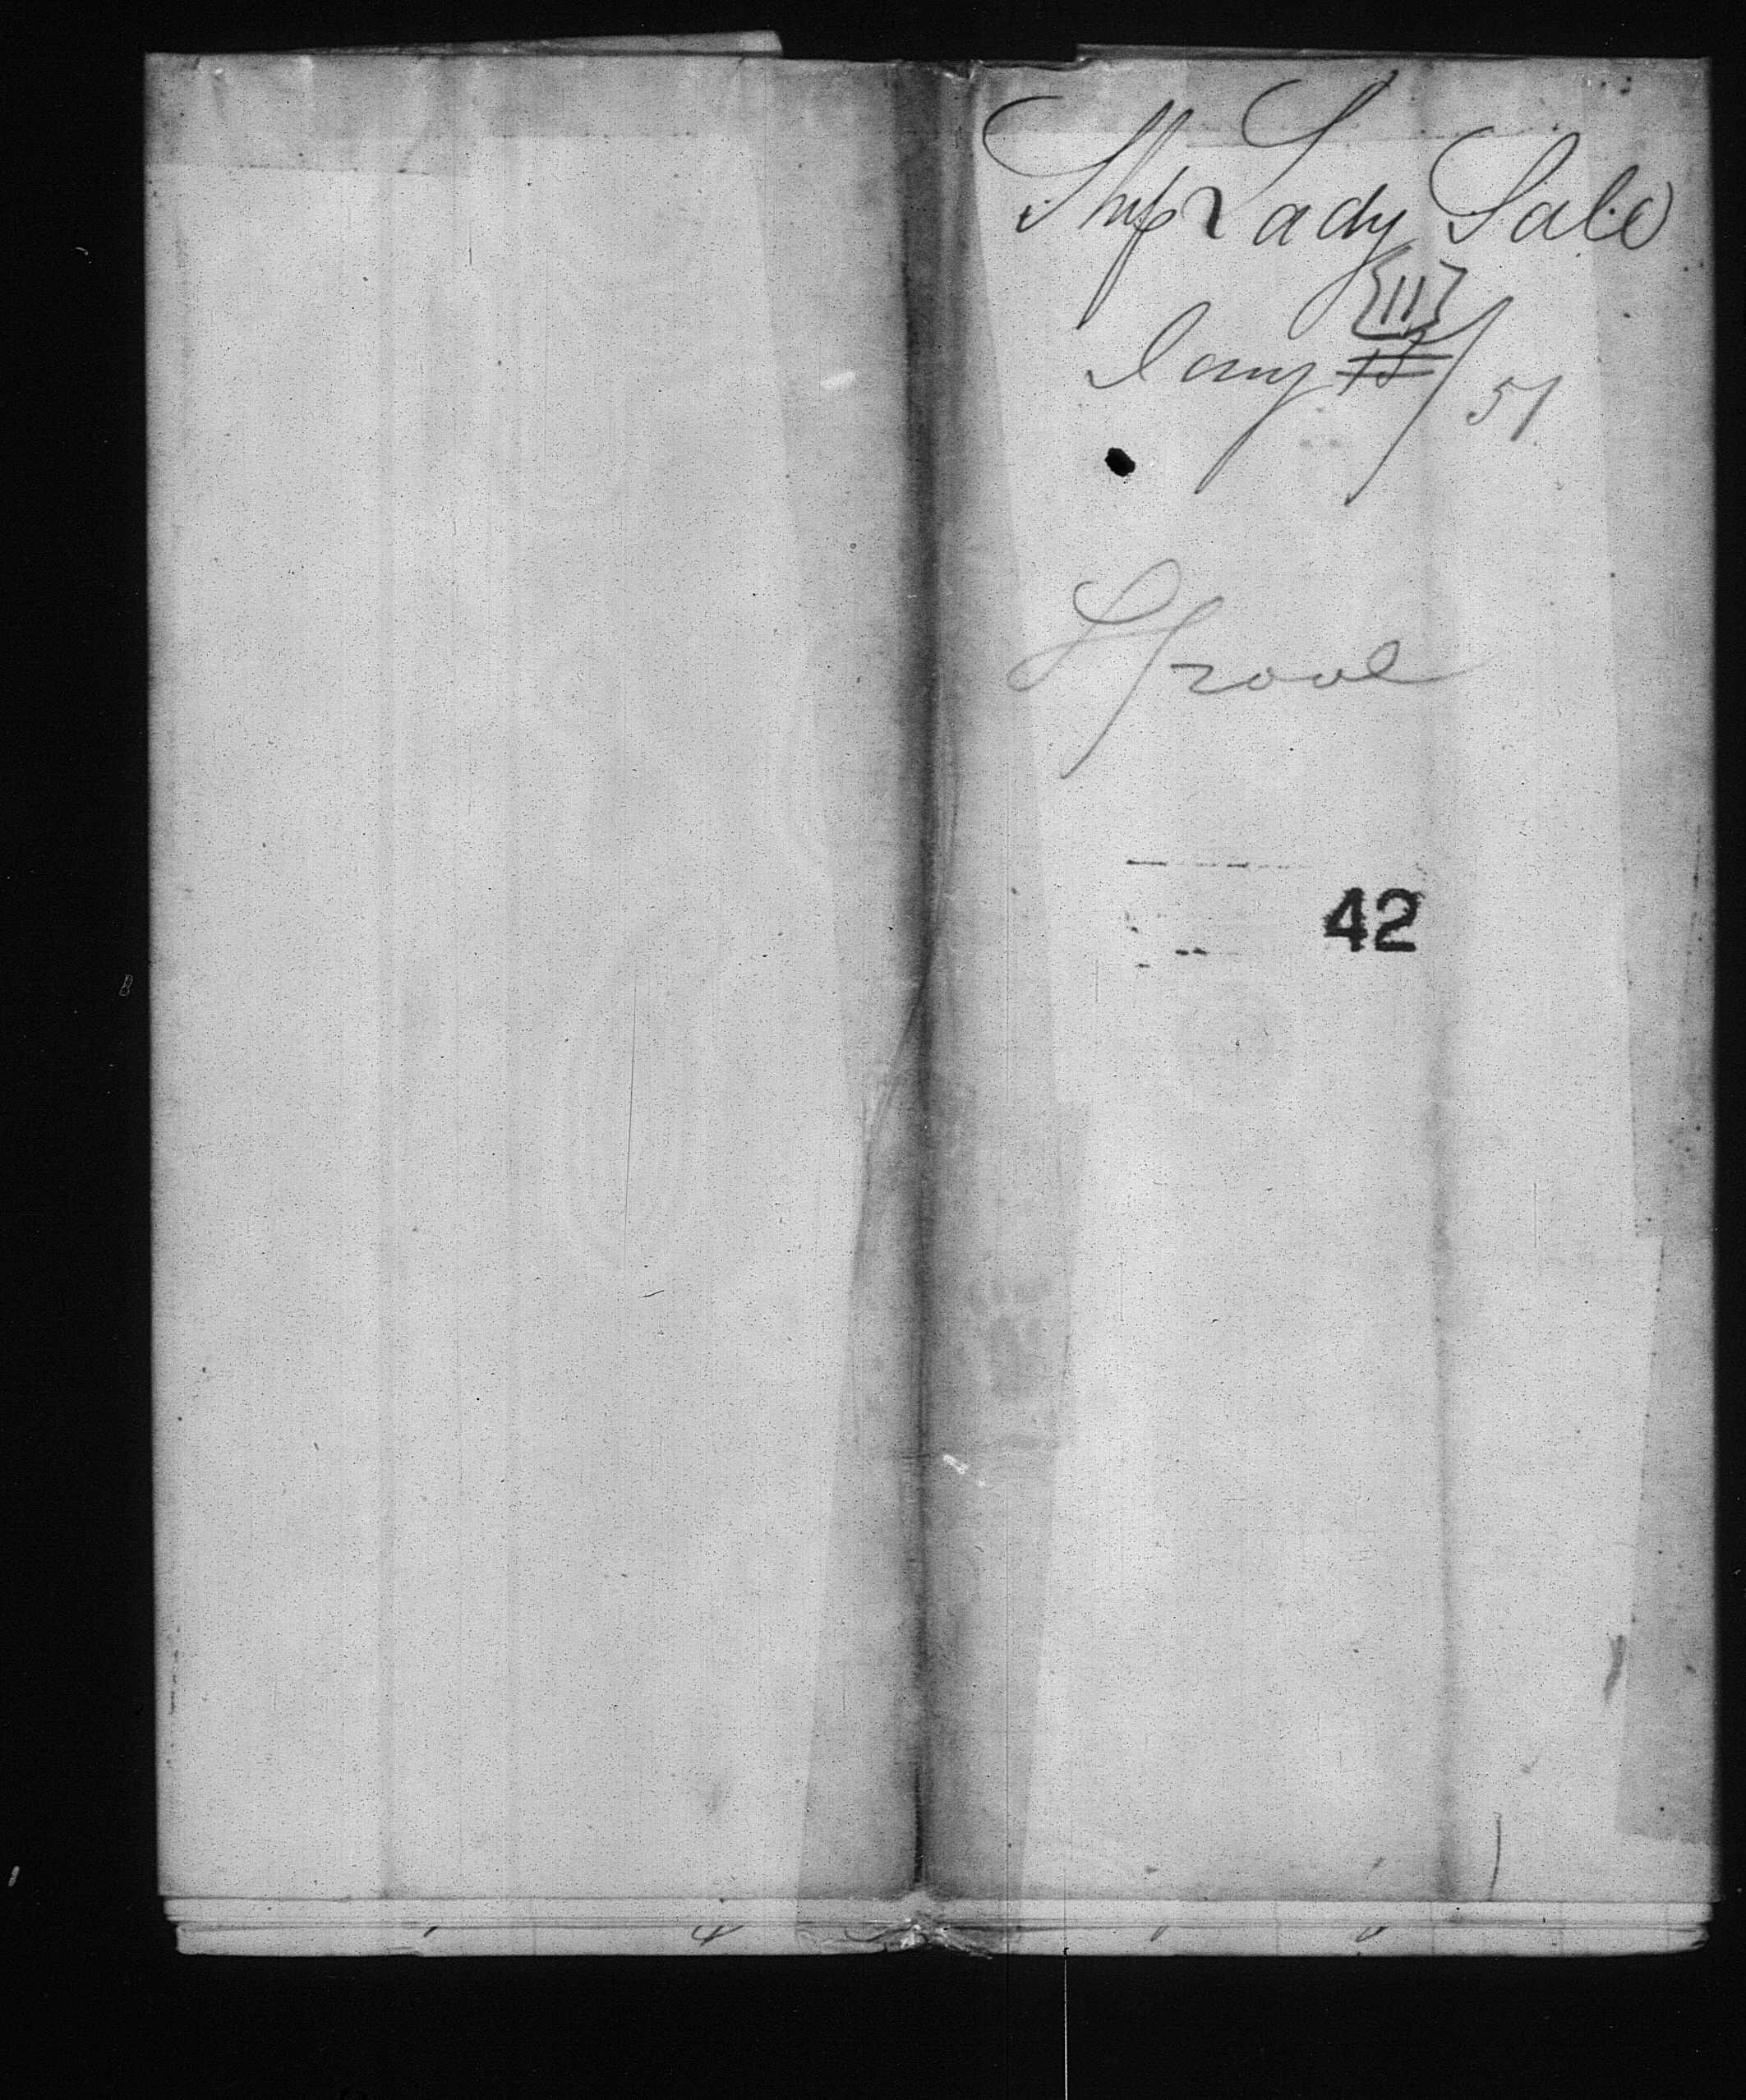 Ship Lady Sale
{11}
Jany 13/51
Lpool
42